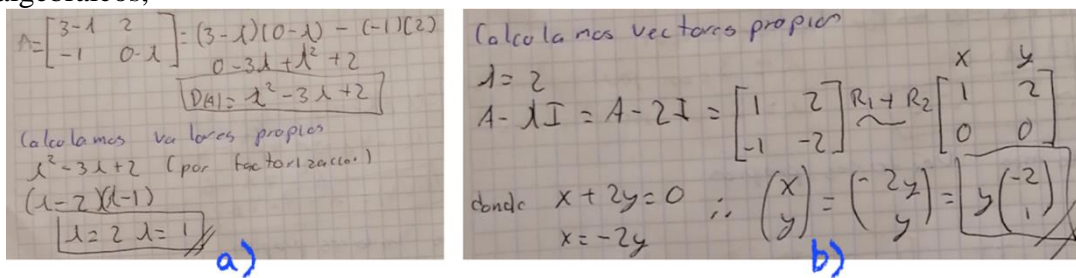 algebraicos,
A=[3-λ 2 -1 0-λ] = (3-λ)(0-λ) - (-1)(2)
0-3λ+λ²+2
D(A)= λ²-3λ+2
Calculamos valores propios
λ²-3λ+2 (por factorización)
(λ-2)(λ-1)
λ=2 λ=1
a)
Calculamos vectores propios
λ=2
A-λI = A-2I = [1 2 -1 -2] R₁+R₂ [1 2 0 0] x y
donde x+2y=0 ∴ (x y) = (-2y y) = y(-2 1)
x=-2y
b)